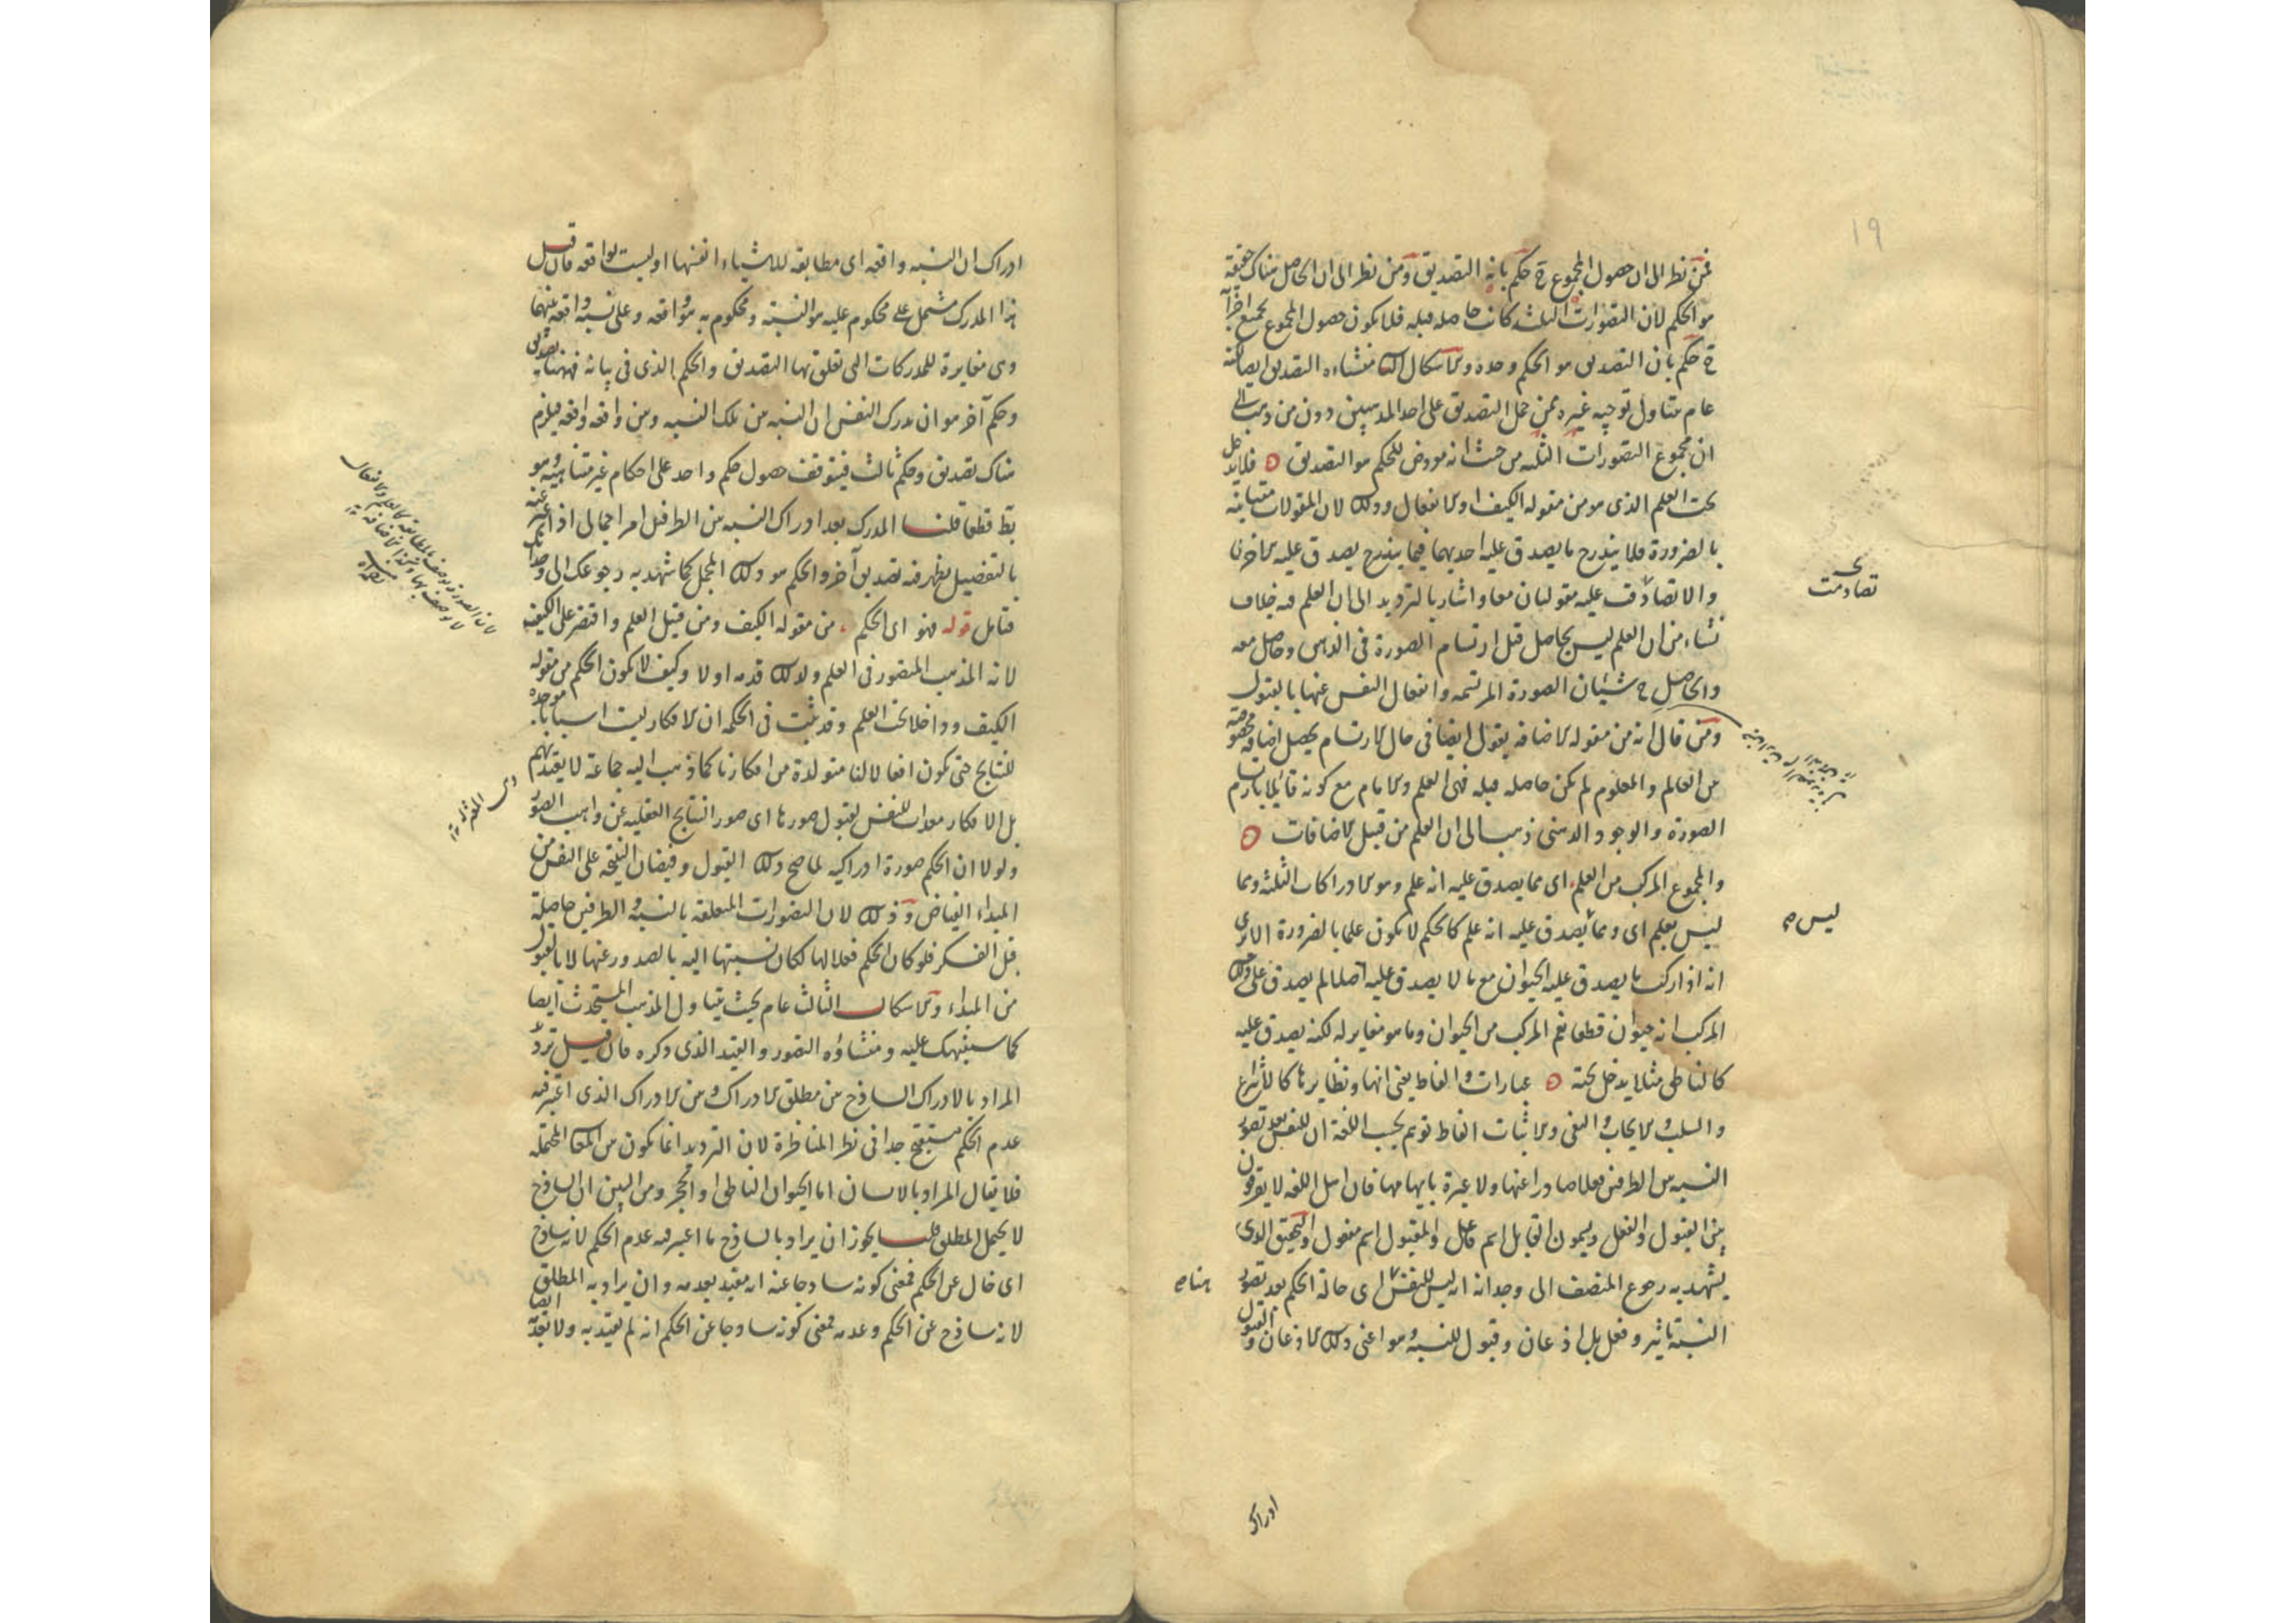 ١٩
فمن نظر الى ان حصول المجموع ح حكم بانه التصديق ومن نظر الى ان الحاصل هناك حقيقة
هو الحكم لان التصورات الثلثة كانت حاصلة قبله فلا يكون حصول المجموع بجميع اجزائه
ح حكم بان التصديق هو الحكم وحده والاشكال الثانى منشاءه التصديق ايضا لكنه
عام متناول توجيه غيره ممن حمل التصديق على احد المذهبين دون من ذهب الى
ان مجموع التصورات الثلثة من حيث انه معروض للحكم هو التصديق فلا يدخل
تحت العلم الذى هو من مقولة الكيف او الانفعال وذلك لان المقولات متباينة
بالضرورة فلا يندرج ما يصدق عليه احديهما فيما يندرج يصدق عليه الاخرى
والا تصادق عليه مقولتان معا واشار بالترديد الى ان العلم فيه خلاف
تصادقت
نشاء من ان العلم ليس بحاصل قبل ارتسام الصورة فى الذهن وحاصل معه
والحاصل ح شيئان الصورة المرتسمة وانفعال النفس عنها بالقبول
ومن قال انه من مقولة الاضافة يقول ايضا فى حال الارتسام يحصل اضافة مخصوصة
بين العالم والمعلوم لم تكن حاصلة قبله فهى العلم والامام مع كونه قائلا بارتسام
الصورة والوجود الذهنى ذهب الى ان العلم من قبيل الاضافات
والمجموع المركب من العلم اى مما يصدق عليه انه علم وهو الادراكات الثلثة ومما
ليس بعلم اى ومما يصدق عليه انه علم كالحكم لا يكون علما بالضرورة الا ترى
ليس صح
انه اذا ركب ما يصدق عليه الحيوان مع ما لا يصدق عليه اصلا لم يصدق على ذلك
المركب انه حيوان قطعا نعم المركب من الحيوان وما هو مغاير له لكنه يصدق عليه
كالناطق مثلا يدخل تحته عبارات والفاظ يعنى انها ونظايرها كالانتزاع
والسلب والايجاب والنفى والاثبات الفاظ توهم بحسب اللغة ان للنفس بعد تصور
النسبة بين الطرفين فعلا صادرا عنها ولا عبرة بايهامها فان اهل اللغة لا يفرقون
بين القبول والفعل ويسمون القابل اسم فاعل والمقبول اسم مفعول والتحقيق الذى
يشهد به رجوع المنصف الى وجدانه انه ليس للنفس اى حالة الحكم بعد تصور
هنا صح
النسبة تاثير وفعل بل اذعان وقبول للنسبة وهو اعنى ذلك الاذعان والقبول
ادراك
ادراك ان النسبة واقعة اى مطابقة للاشياء انفسها او ليست بواقعة فان قيل
هذا المدرك مشتمل على محكوم عليه هو النسبة ومحكوم به هو واقعة وعلى نسبة واقعة بينهما
وهى مغايرة للمدركات التى تعلق بها التصديق والحكم الذى فى بيانه فههنا تصديق
وحكم آخر هو ان تدرك النفس ان النسبة بين تلك النسبة وبين واقعة واقعة فيلزم
هناك تصديق وحكم ثالث فيتوقف حصول حكم واحد على احكام غير متناهية وهو
بط قطعا قلنا المدرك بعد ادراك النسبة بين الطرفين امر اجمالى اذا عبر عنه
بالتفصيل يظهر فيه تصديق آخر والحكم هو ذلك المجمل كما شهد به رجوعك الى وجدانك
فتامل قوله فهو اى الحكم من مقولة الكيف ومن قبيل العلم واقتصر على الكيف
لانه المذهب المنصور فى العلم ولذلك قدمه اولا وكيف لا يكون الحكم من مقولة
الكيف وداخلا تحت العلم وقد ثبت فى الحكمة ان الافكار ليست اسبابا موجدة
للنتايج حتى تكون افعالا لنا متولدة من افكارنا كما ذهب اليه جماعة لا يعتد بهم
بل الافكار معدات للنفس لقبول صورها اى صور النتايج العقلية عن واهب الصور
ولولا ان الحكم صورة ادراكية لما صح ذلك القبول وفيضان النتيجة على النفس من
المبداء الفياض وذلك لان التصورات المتعلقة بالنسبة والطرفين حاصلة
قبل الفكر فلو كان الحكم فعلا لها لكان نسبتها اليه بالصدور عنها لا بالقبول
من المبداء والاشكال الثالث عام بحيث يتناول المذهب المستحدث ايضا
كما سينبهك عليه ومنشاؤه التصور والقيد الذى ذكره فان قيل تردد
المراد بالادراك الساذج بين مطلق الادراك وبين الادراك الذى اعتبر فيه
عدم الحكم مستقبح جدا فى نظر المناظرة لان الترديد انما يكون بين المعانى المحتملة
فلا يقال المراد بالانسان اما الحيوان الناطق او الحجر ومن البين ان الساذج
لا يحتمل المطلق قلنا يجوز ان يراد بالساذج ما اعتبر فيه عدم الحكم لانه ساذج
اى خال عن الحكم فمعنى كونه ساذجا عنه انه مقيد بعدمه وان يراد به المطلق
لانه ساذج عن الحكم وعدمه فمعنى كونه ساذجا عن الحكم انه لم يقيد به ولا بعدمه ايضا